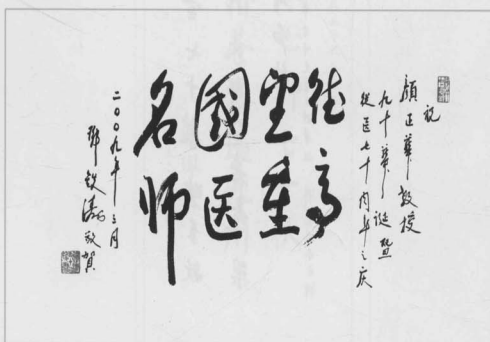 祝
颜正华教授
九十华诞暨
从医七十周年之庆
德高
望重
國医
名师
二〇〇九年三月
邓铁涛敬贺